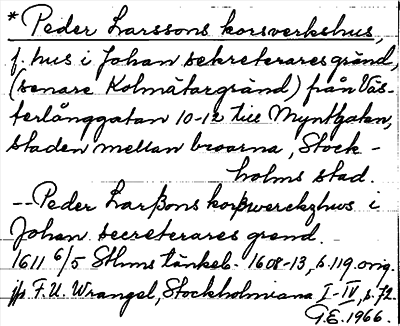 * Peder Larssons korsverkshus,
f. hus i Johan sekreterares gränd,
(senare Kolmätargränd) från Väs-
terlånggatan 10-12 till Myntgatan,
staden mellan broarna, Stock-
holms stad.
-- Peder Larßons korßwerckzhus i
Johan secreterares grend.
1611 6/5 Sthms tänkeb. 1608-13, s. 119 orig.
jfr F.U. Wrangel, Stockholmiana I-IV, s. 72.
G.E. 1966.